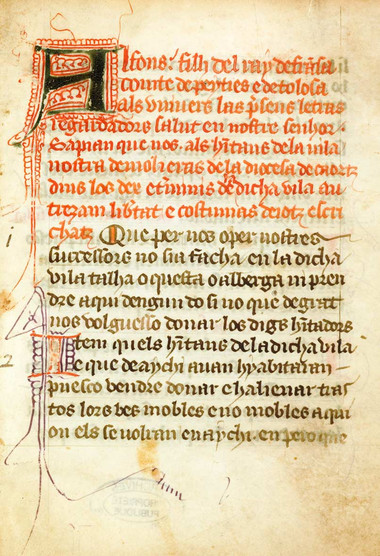 Alfons: filh del ray de fransa
comte de peyties e de tolosa
als vnivers las psens letras
regardadors salut en nostre senhor.
Sapian que nos. als hitans de la vila
nostra de molieras de la diocesa de caortz
dins los dex et termis de dicha vila au
treiam libtat e costumas de iotz escri
chas. Que per nos o per nostres
successors no sia facha en la dicha
vila talha o questa o alberga in pren
dre aqui dengun do si no que de grat
nos volguesso donar los digs hitadors
Item quels hitans de la dicha vila
e que de aychi auan hyabitaran
puesco vendre donar e halienar tras
tos lors bes mobles e no mobles a qui
on els se volran en aychi. en pero que
1
2
PROPRIETE
PUBLIQUE